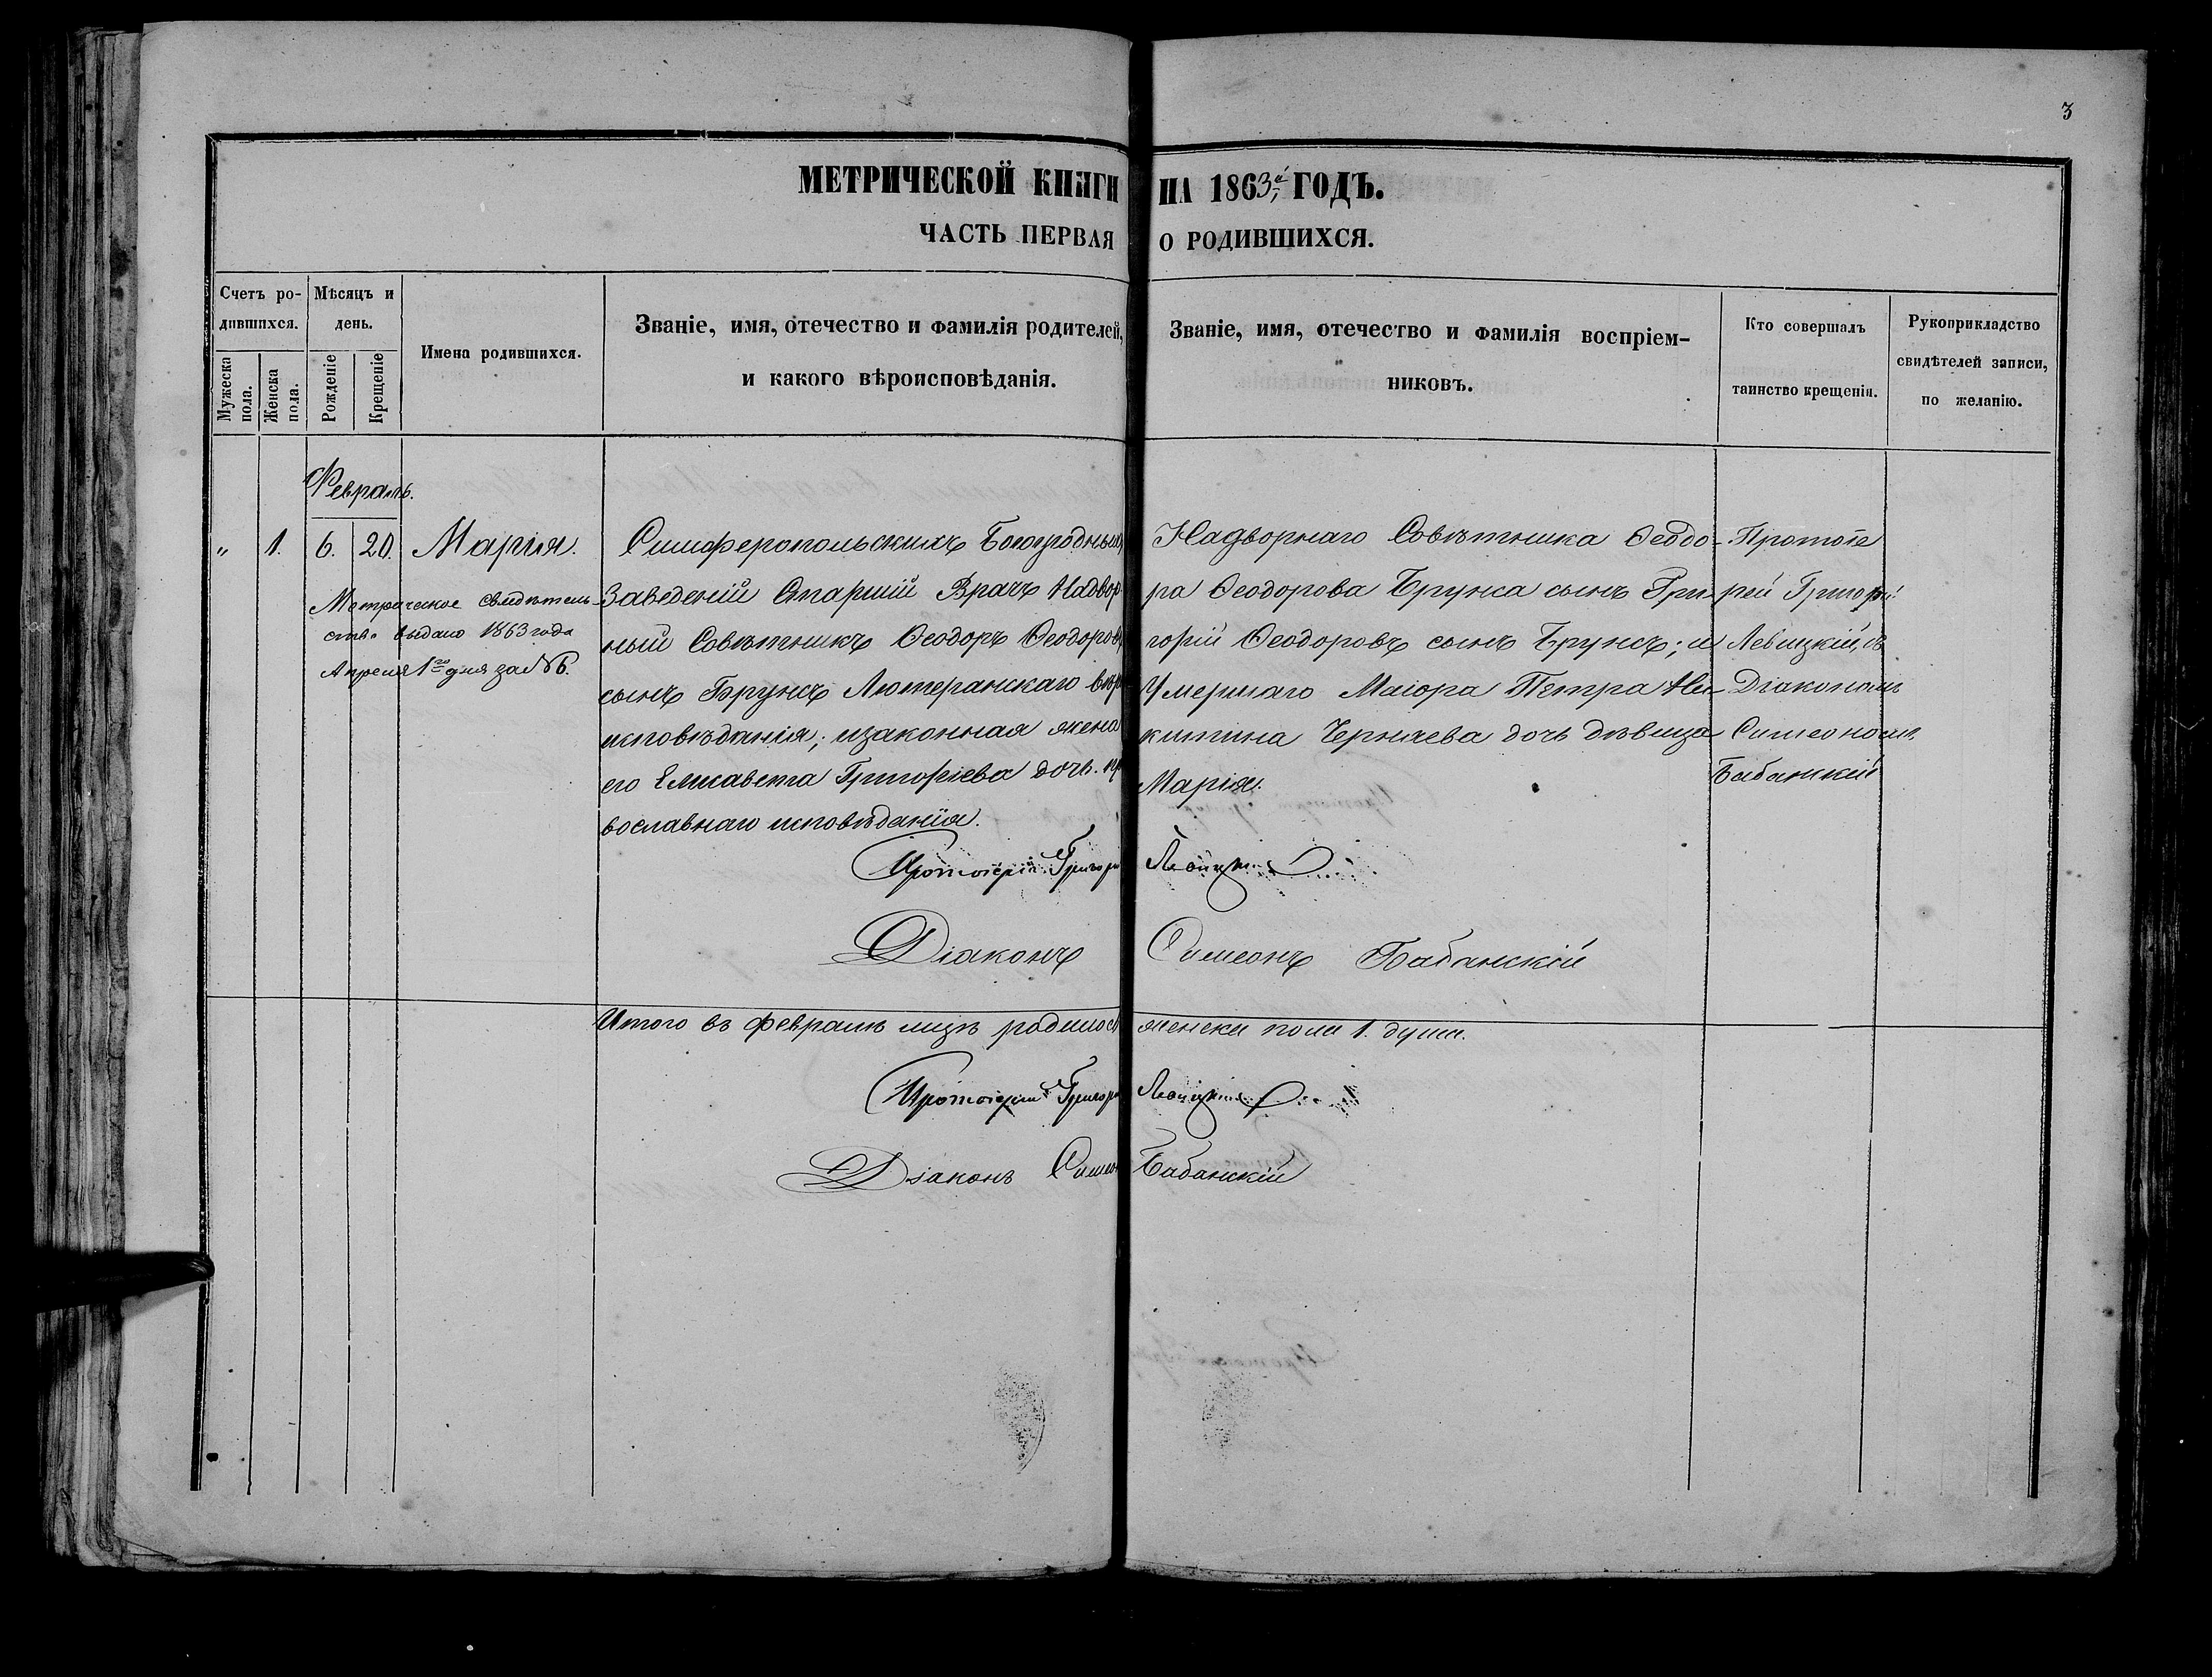 3
МЕТРИЧЕСКОЙ КНИГИ НА 1863й ГОДЪ.
ЧАСТЬ ПЕРВАЯ О РОДИВШИХСЯ.
Счетъ ро-
дившихся.
Мужеска
пола.
Женска
пола.
Мѣсяцъ и
день.
Рожденіе
Крещеніе
Имена родившихся.
Званіе, имя, отечество и фамилія родителей,
и какого вѣроисповѣданія.
Званіе, имя, отечество и фамилія воспріем-
никовъ.
Кто совершалъ
таинство крещенія.
Рукоприкладство
свидѣтелей записи,
по желанію.
Февраль.
" 1. 6. 20. Марія.
Метрическое свидѣтель-
ство выдано 1863 года
Апреля 1го дня за №6.
Симферопольскихъ Богоугодныхъ
Заведеній Старшій Врачъ Надвор-
ный Совѣтникъ Ѳеодоръ Ѳеодоровъ
сынъ Брунсъ Лютеранскаго вѣро
исповѣданія; и законная жена
его Елисавета Григоріева дочь. пра
вославнаго исповѣданія.
Надворнаго Совѣтника Ѳеодо-
ра Ѳеодорова Брунса сынъ Гри-
горій Ѳеодоровъ сынъ Брунсъ; и
Умершаго Маіора Петра Ни-
китина Черняева дочь дѣвица
Марія.
Протоіе
рей Григорій
Левицкій, съ
Діакономъ
Симеономъ
Бабанскій
Протоіерей Григорій Левицкій
Діаконъ Симеонъ Бабанскій
Итого въ февралѣ мцѣ родилось женска пола 1. душа.
Протоіерей Григорій Левицкій
Діаконъ Симеонъ Бабанскій